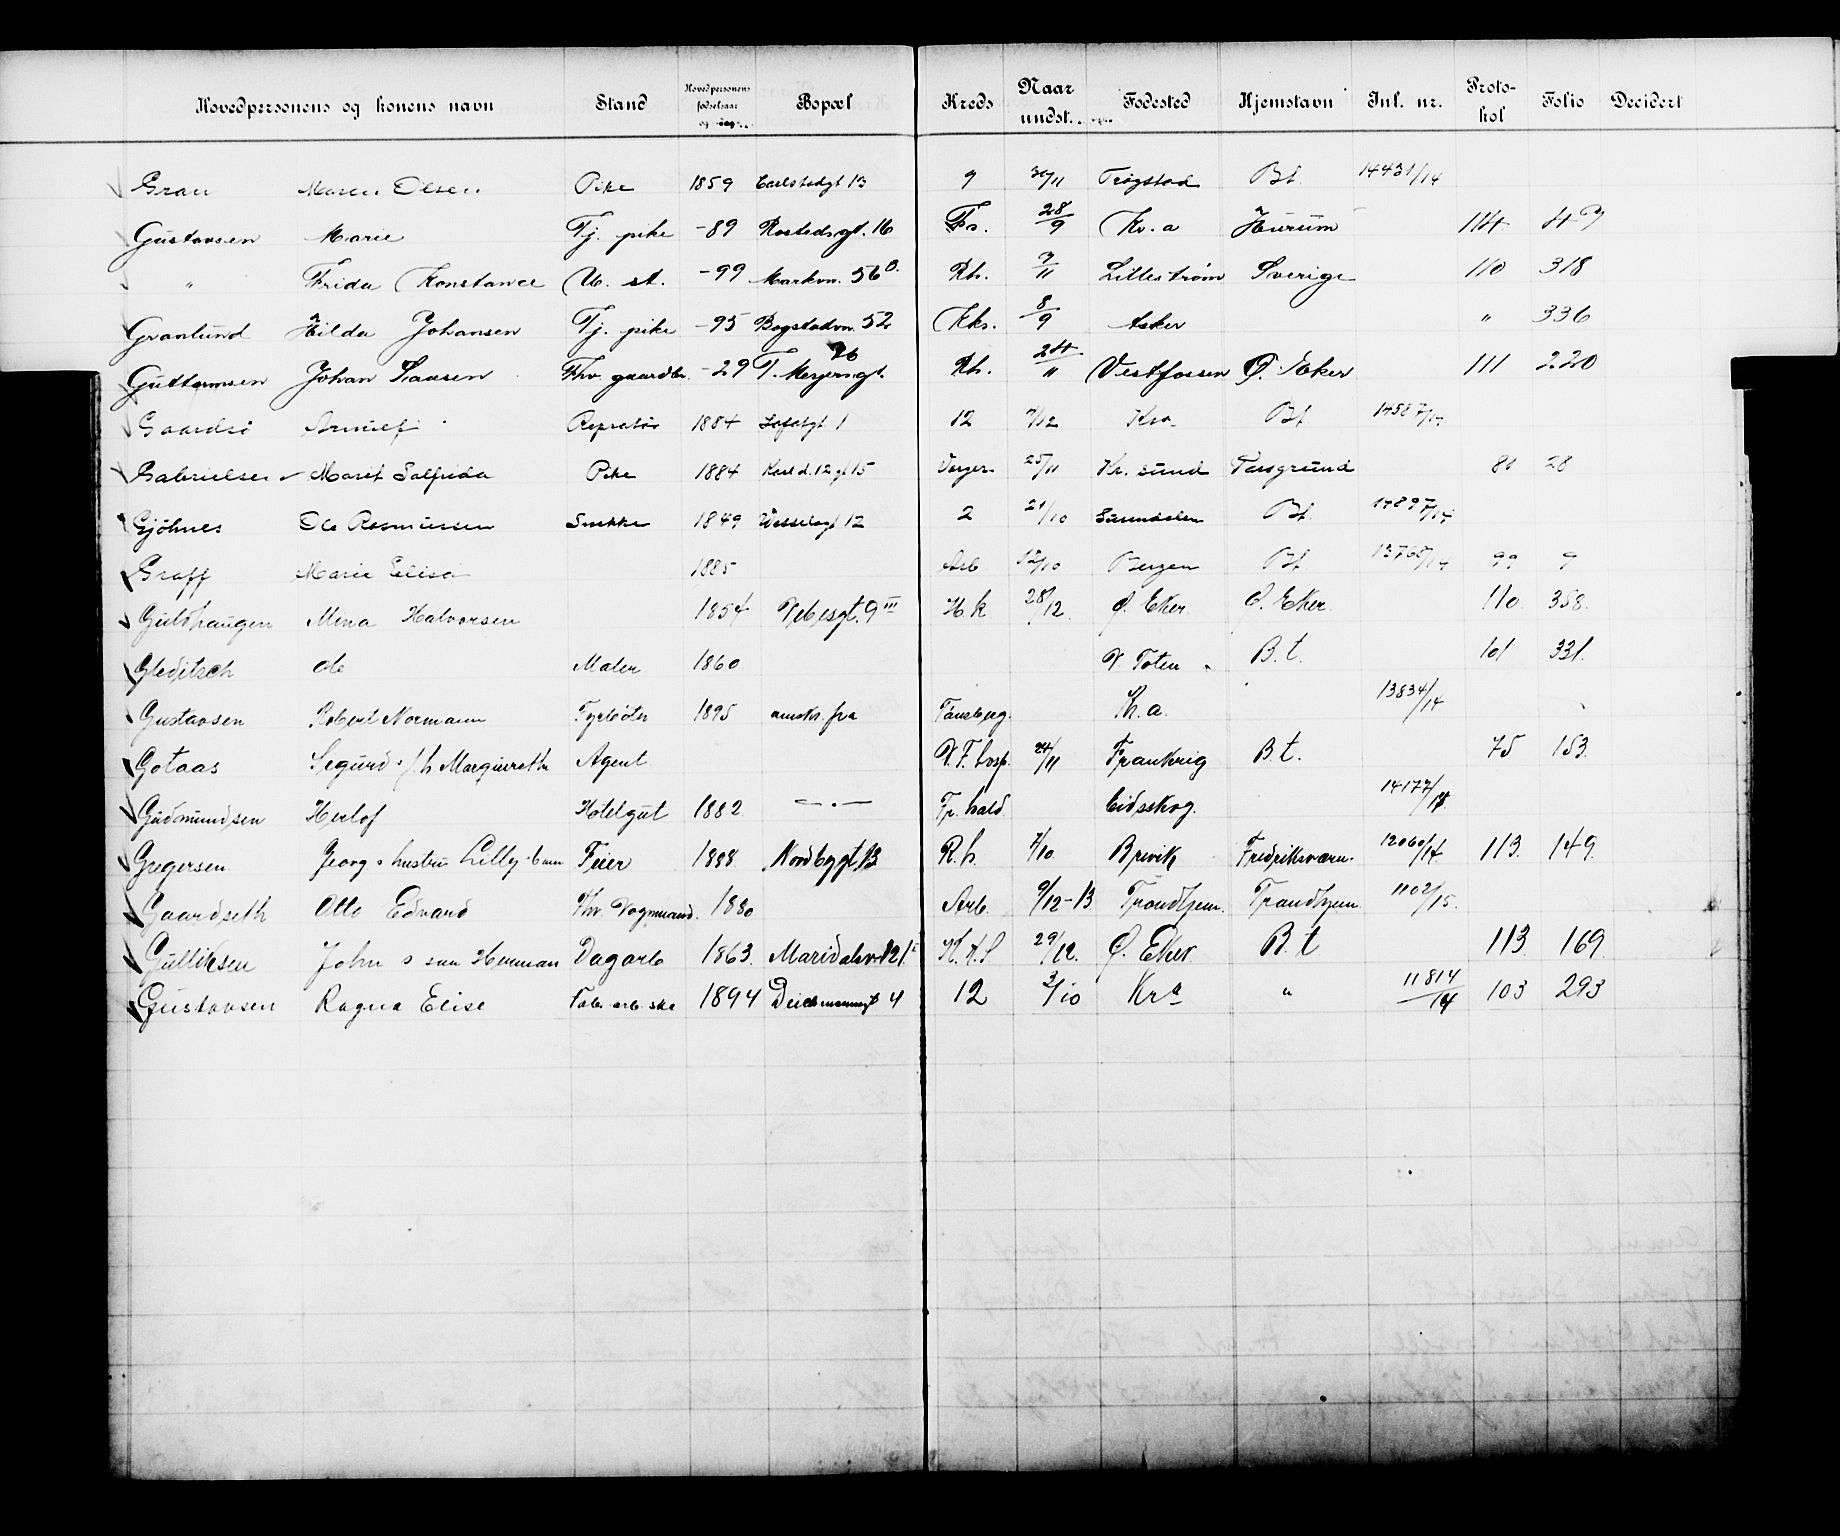 Hovedpersonens og konens navn Stand Hovedpersonens fødselsaar og dag Bopæl Kreds Naar undst. Fødested Hjemstavn Jnl. nr. Protokol Folio Decidert
Gran Maren Olsen Pike 1859 Carlstadgt 13 9 30/11 Trøgstad Bt. 14431/14
Gustavsen Marie Tj. pike -89 Rostedsgt. 16 Fr. 28/9 Kr.a Hurum 114 47
" Frida Konstance U. st. -99 Markvn. 56 Rh. 7/11 Lillestrøm Sverige 110 318
Granlund Hilda Johansen Tj. pike -95 Bogstadvn. 52 Kks. 8/9 Asker " 336
Guttormsen Johan Fhv. gaardbr. -29 T. Meyersgt. 26 Rh. 24/11 Vestfossen Ø. Eker 111 220
Gaardsø 1884 Lofotgt 1 12 7/12 Kra Bt
Gabrielsen Marit Pike 1884 Karl d. 12 gt 15 25/11 Kr. sund 81 28
Gjöhnes Ole Rasmussen Snekker 1849 Wesselsgt 12 2 21/10 Surendalen Bt.
Graff Marie Elisa 1885 Arb 12/10 Bergen Bt 13768/14 99 9
Guldhaugen Mina Halvorsen 1854 Vibesgt. 9 III H.k 28/12. Ø. Eker. Ø. Eker. 110. 358.
Gleditsch Ole Maler 1860 V. Toten B.t. 101 331.
Gustavsen Robert Normann Fyrbøter 1895 ansk. fra Tønsberg. Kr.a. 13834/14
Gotaas Sigurd o f. h. Margiureth Agent 24/11 Frankrig B.t. 75 153.
Gudmundsen Herlof Hotelgut 1882. — . — Fr. hald Eidsskog. 14177/14
Gregersen. Georg o hustru Lilly o barn Feier 1888. Nordbygt. 13 R.h. 7/10. Brevik Fredriksværn. 12060/14 113. 149.
Gaardseth Otto Edvard Fhv. Vognmand. 1880 Arb. 9/12-13 Trondhjem. Trondhjem 1102/15.
Gulliksen John o søn Herman Dagarb 1863. Maridalsv. 121 29/12. Ø. Eker. B.t 113 169.
Gustavsen Ragna Elise Fabr. arb. ske 1894 Deichmannsgt 4 12 3/10 Kra " 11814/14 103 293